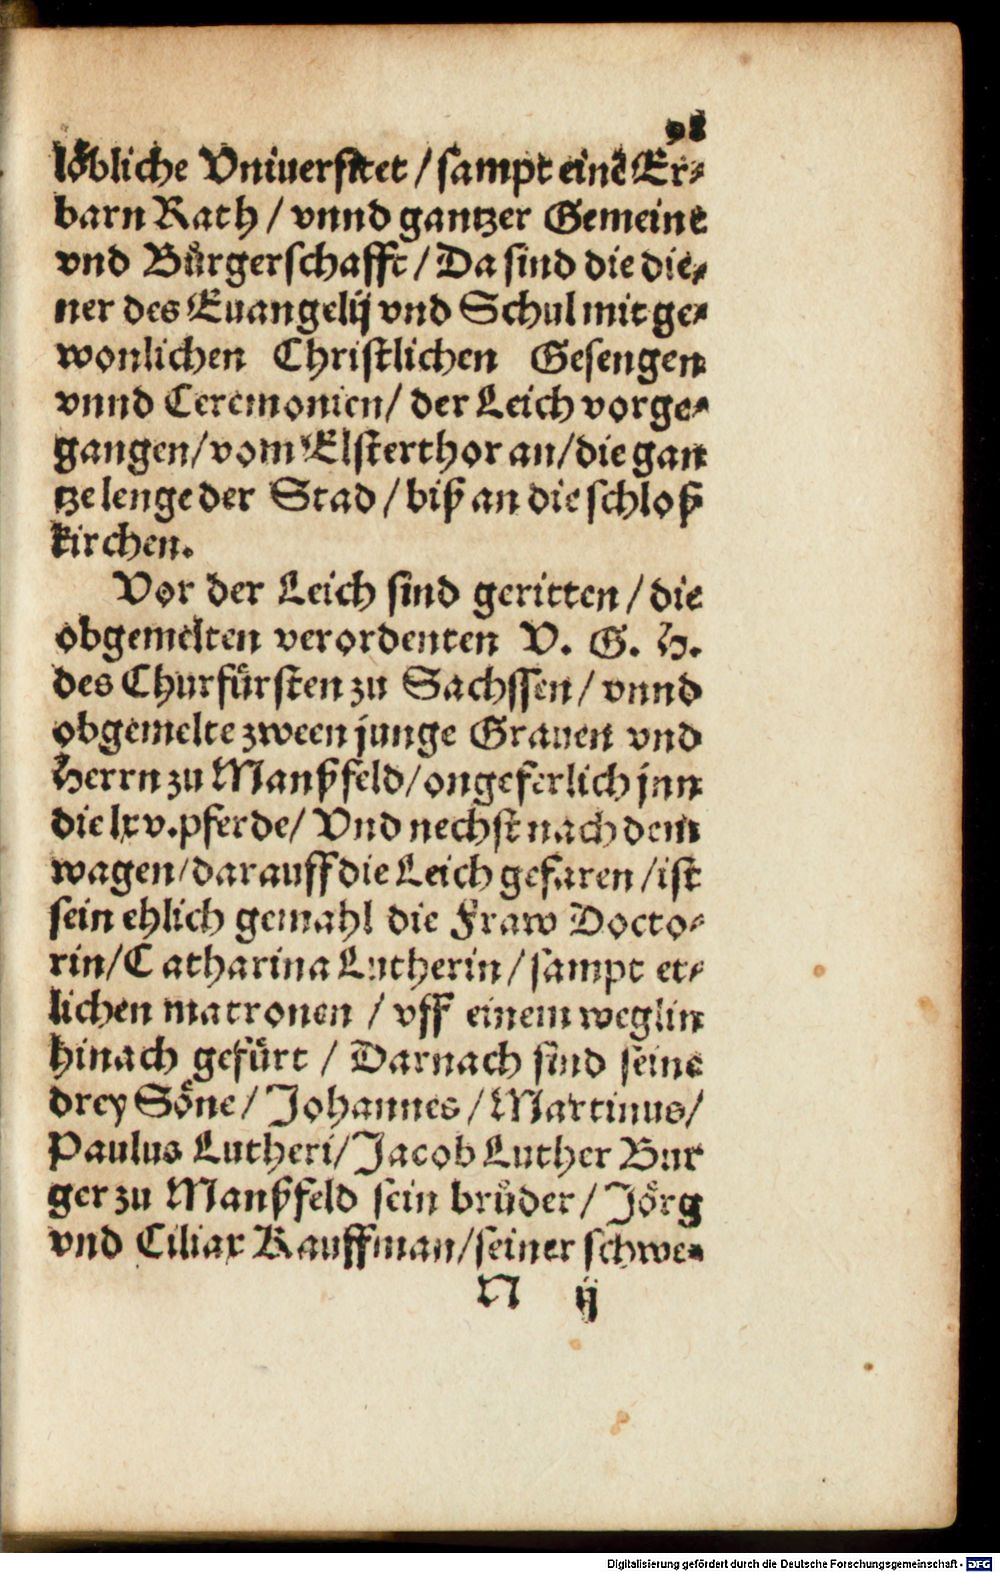 98
löbliche Vniuersitet / sampt einē Er-
barn Rath / vnnd gantzer Gemeine
vnd Bůrgerschafft / Da sind die die-
ner des Euangelij vnd Schul mit ge-
wonlichen Christlichen Gesengen
vnnd Ceremonien / der Leich vorge-
gangen / vom Elsterthor an / die gan
tze lenge der Stad / biß an die schloß
kirchen.
Vor der Leich sind geritten / die
obgemelten verordenten V. G. H.
des Churfürsten zu Sachssen / vnnd
obgemelte zween junge Grauen vnd
Herrn zu Manßfeld / ongeferlich jnn
die lxv. pferde / Vnd nechst nach dem
wagen / darauff die Leich gefaren / ist
sein ehlich gemahl die Fraw Docto-
rin / Catharina Lutherin / sampt et-
lichen matronen / vff einem weglin
hinach gefürt / Darnach sind seine
drey Söne / Johannes / Martinus /
Paulus Lutheri / Jacob Luther Bur
ger zu Manßfeld sein brůder / Jörg
vnd Ciliax Kauffman / seiner schwe-
N ij
Digitalisierung gefördert durch die Deutsche Forschungsgemeinschaft - DFG